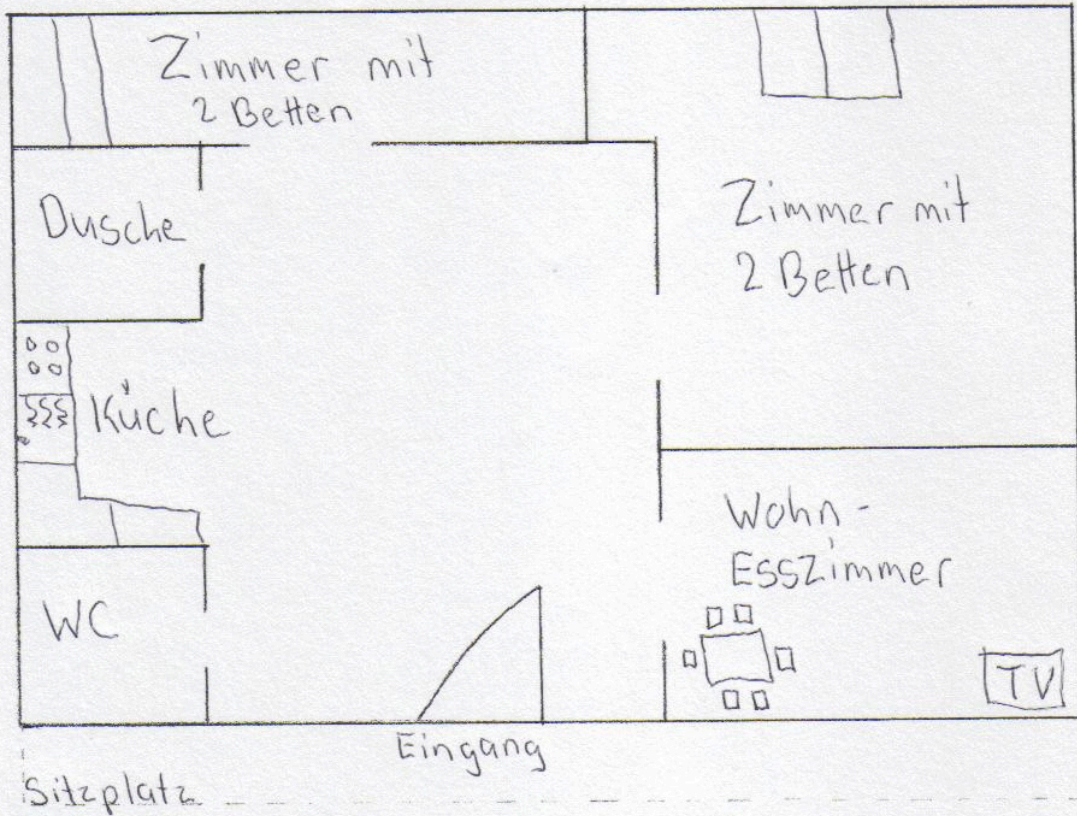 Zimmer mit
2 Betten
Dusche
Zimmer mit
2 Betten
Küche
Wohn-
Esszimmer
WC
TV
Eingang
Sitzplatz